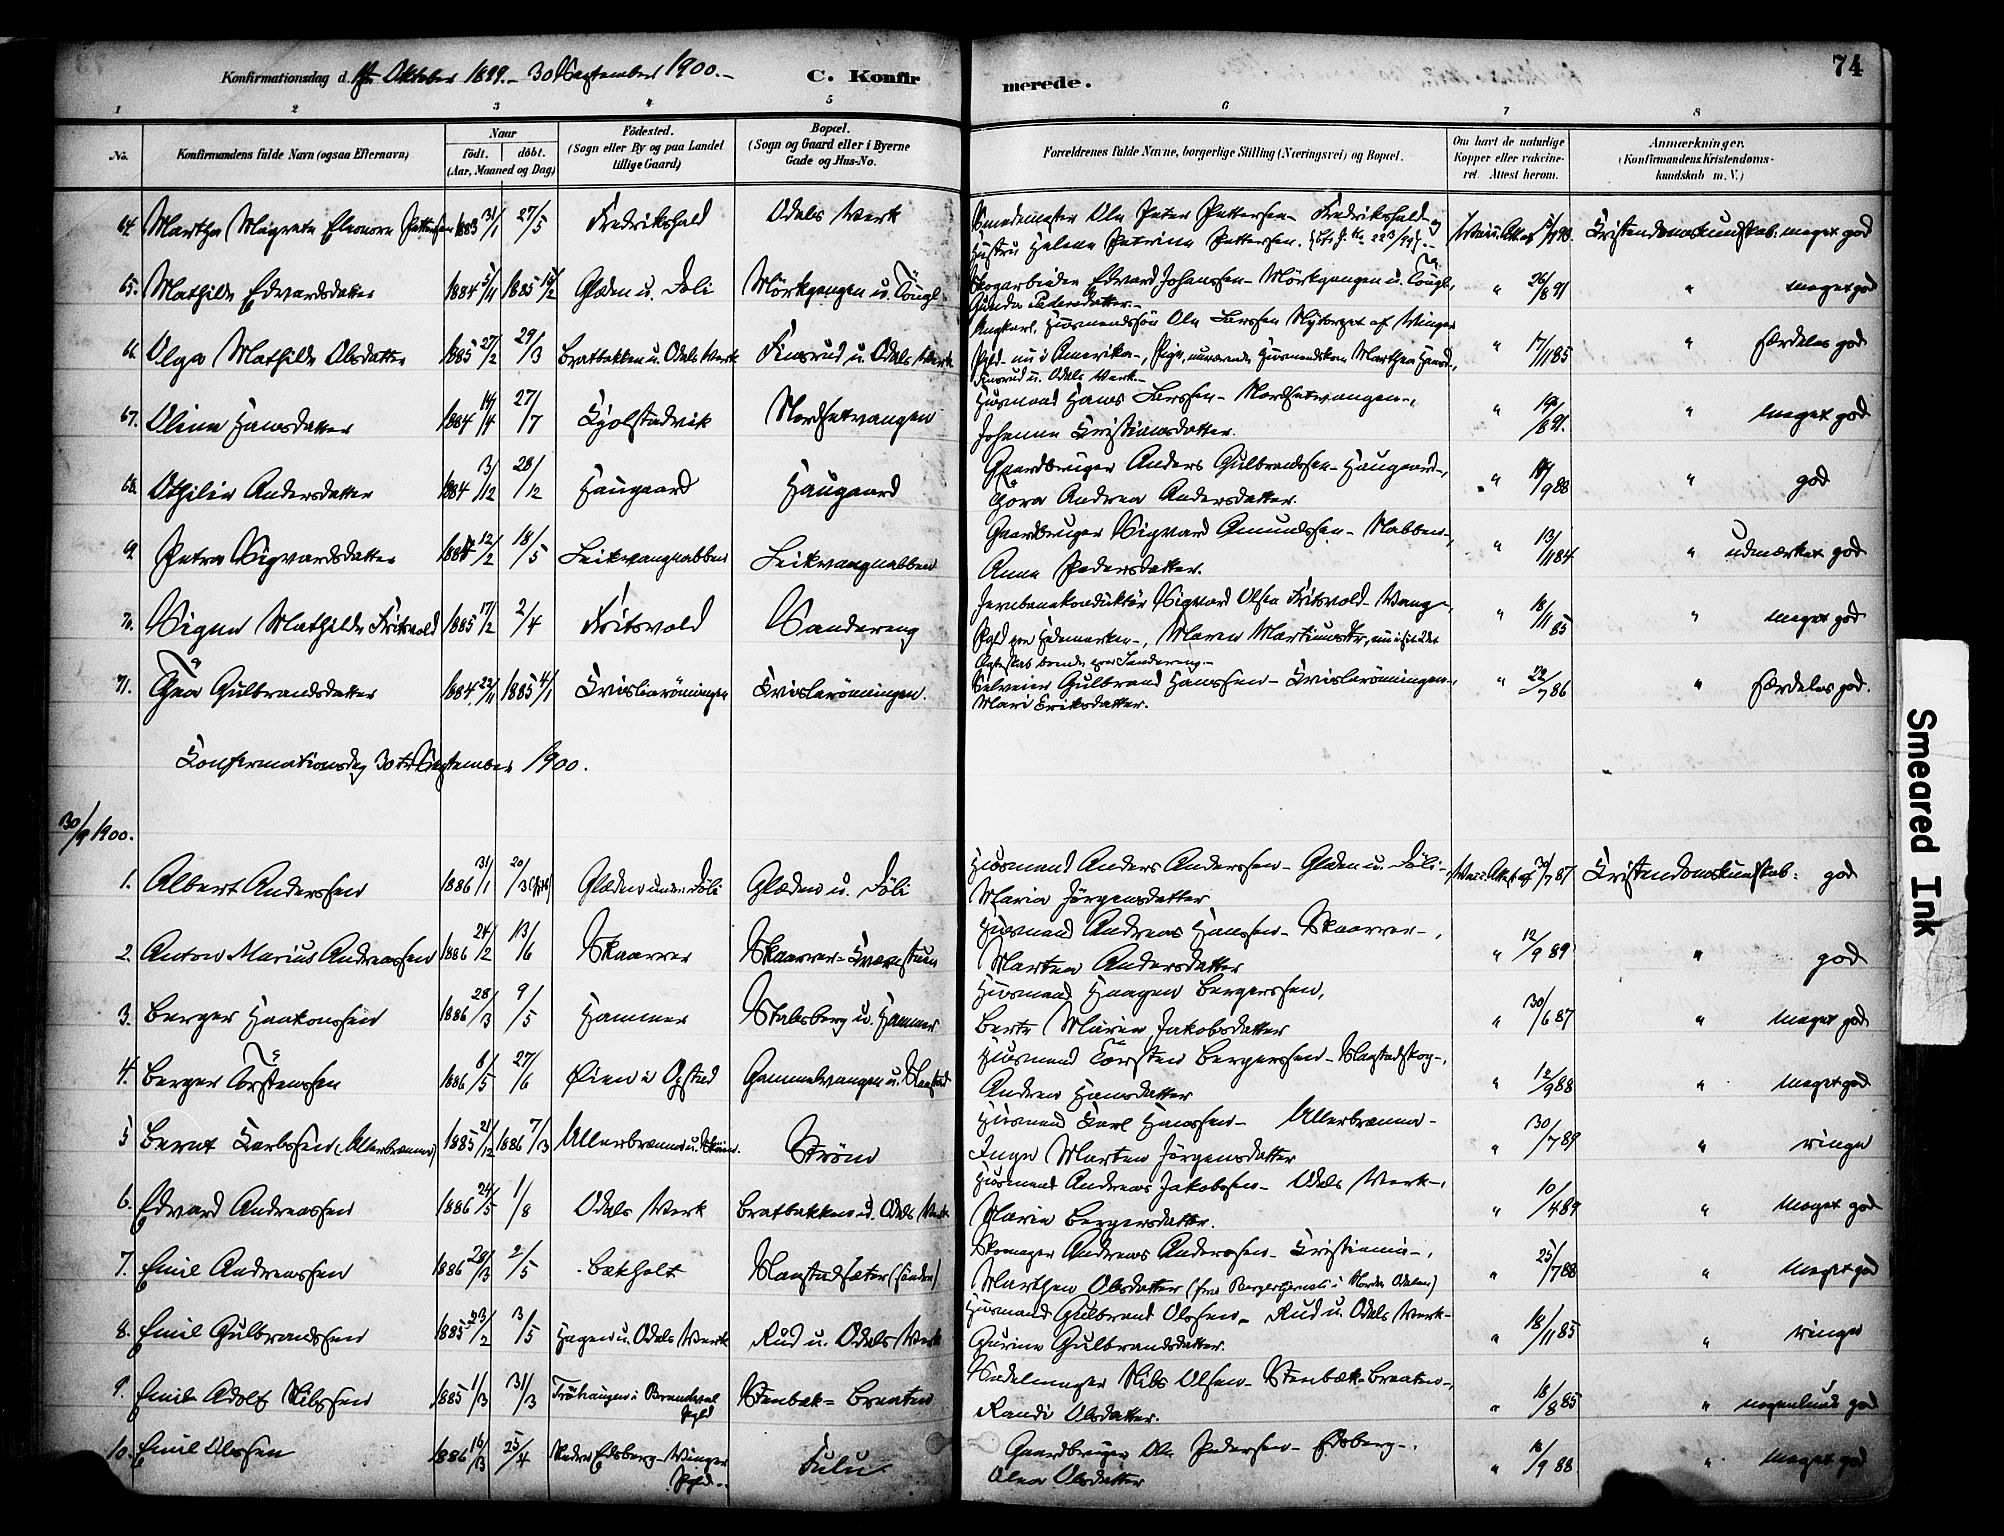 74
Konfirmationsdag d. 1ste Oktober 1899. - 30 September 1900. -
C. Konfirmerede.
1 2 3 4 5 6 7 8
No.
Konfirmandens fulde Navn (ogsaa Efternavn)
Naar
født. døbt.
(Aar, Maaned og Dag)
Fødested.
(Sogn eller By og paa Landet
tillige Gaard)
Bopæl.
(Sogn og Gaard eller i Byerne
Gade og Hus-No.
Forældrenes fulde Navne, borgerlige Stilling (Næringsvei) og Bopæl.
Om havt de naturlige
Kopper eller vakcine-
ret. Attest herom.
Anmærkninger.
(Konfirmandens Kristendoms-
kundskab m. V.)
64. Martha Magrete Eleonora Pettersen 1883 31/1 27/5 Fredrikshald Odals Værk Ole Peter Pettersen - Fredrikshald - og
Hustru Helene Petrine Pettersen. Kristendomskundskab: meget god
65. Mathilde Edvardsdatter 1884 5/11 1885 Glæden u. Døli Mørkgangen u. Skogarbeider Edvard Johanssen - Mørkgangen u.
Gunda Pedersdatter. - " 26/8 91 " meget god
66. Olga Mathilde Olsdatter 1885 27/2 29/3 Bratbakken u. Odals Værk Finsrud u. Odals Værk Ungkarl, Husmandssøn Ole Larssen af Winger
Pgld - nu i Amerika -, Pige, nuværende Marthea
Finsrud u. Odals Værk. - " 17/11 85 " særdeles god
67. Oline Hansdatter 1884 14/4 27/7 Kjølstadvik Nordsetvangen Husmand Hans Larssen - Nordsetvangen -,
Johanne Kristiansdatter. " " meget god
68. Othilie Andersdatter 1884 3/12 28/12 Haugaard Haugaard Gaardbruger Anders Gulbrandssen - Haugaard -,
Thora Andrea Andersdatter. " 14/9 88 " god
9. Petra Sigvardsdatter 1884 12/2 18/5 Leikvangnabben Leikvangnabben Gaardbruger Sigvard Amundssen - Nabben -,
Anne Pedersdatter. " 13/11 84 " udmerket god
70. Signe Mathilde Fritsvold 1885 17/2 2/4 Fritsvold Sandereng Jernbanekonduktør Sigvard Olsen Fritsvold - Wang -,
Pgld paa Hedemarken -, Maren
Ægteskab boende paa Sandereng. - " 18/11 85 " meget god
71. Thea Gulbrandsdatter 1884 22/11 1885 4/1 Kvislerønningen Kvislerønningen. Selveier Gulbrand Hanssen - Kvislerønningen -,
Mari Eriksdatter. " 22/7 86 " særdeles god.
Konfirmationsdag 30te September 1900.
30/9 1900.
1. Albert Anderssen 1886 31/1 20/3 Glæden under Døli Glæden u. Døli Husmand Anders Anderssen - Glæden u. Døli -,
Maria Jørgensdatter 30/7 87 Kristendomskundskab: god
2. Anton Marius Andreassen 1886 24/2 13/6 Skaarrer Skaarrer-Husmand Andreas Hanssen - Skaarrer -,
Marten Andersdatter " 12/9 89 " god
3. Berger Haakonssen 1886 28/3 9/5 Hammer Stalsberg u. Hammer Husmand Haagen Bergerssen,
Berte Marie Jakobsdatter " 30/6 87 " meget god
4. Berger Torstenssen 1886 6/5 27/6 Øien i Opstad Gammelvangen u. Husmand Torsten Bergerssen -
Andrea Hansdatter " 12/9 88 " meget god
5 Bernt Karlssen (Ullerbrænna) 1885 21/12 1886 7/3 Ullerbrænna u. Strøm. Strøm Husmand Karl Hanssen - Ullerbrænna -
Inge Marten Jørgensdatter " 30/7 89 " ringe
6. Edvard Andreassen 1886 24/5 1/8 Odals Værk Bratbakken u. Odals Værk Husmand Andreas Jakobssen - Odals Værk -,
Marie Bergersdatter. " 10/4 89 " meget god
7. Emil Andreassen 1886 28/3 2/5 Bækholt (søndre) Skomager Andreas Anderssen - Kristiania -,
Marthea Olsdatter (fra i Nordre Odalen) " 25/7 88 " meget god
8. Emil Gulbrandssen 1885 23/2 3/5 Hagen u. Odals Værk Rud u. Odals Værk Husmand Gulbrand Olssen - Rud u. Odals Værk -
Gurine Gulbrandsdatter. " 18/11 85 " ringe
9. Emil Adolf Nilssen 1885 1/3 31/3 i Brandval
Pgld Stenbæk-Braaten Sadelmager Nils Olsen - Stenbæk-Braaten -,
Randi Olsdatter. " 18/8 85 " nogenlunde god
10. Emil Olssen 1886 16/3 25/4 Nedre Edsberg - Winger
Pgld. - Fulu Gaardbruger Ole Pedersen - Edsberg -,
Olea Olsdatter " 18/9 88 " meget god
Smeared Ink